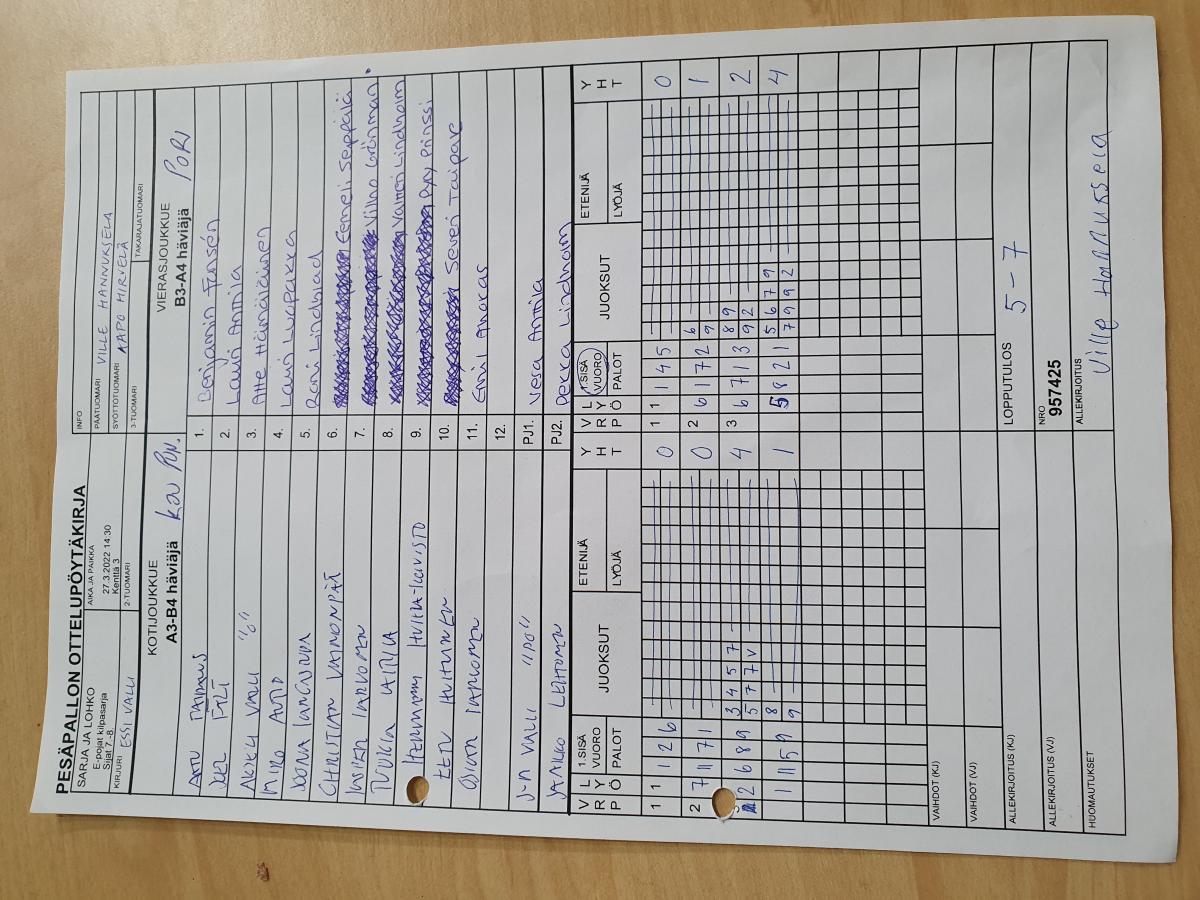 PESÄPALLON OTTELUPÖYTÄKIRJA
SARJA JA LOHKO
E-pojat kilpasarja
Sijat 7.-8.
AIKA JA PAIKKA
27.3.2022 14:30
Kenttä 3
INFO
PÄÄTUOMARI VILLE HANNUKSELA
SYÖTTÖTUOMARI AAPO HIRVELÄ
KIRJURI ESSI VALLI
2-TUOMARI
3-TUOMARI
TAKARAJATUOMARI
KOTIJOUKKUE
A3-B4 häviäjä
VIERASJOUKKUE
B3-A4 häviäjä PORI
1. Benjamin
2. Lauri Anttila
AKSELI VALLI "6" 3. Atte Hämäläinen
MIRO AUTIO 4. Lauri Luopakka
JOONA 5. Roni Lindblad
CHRISTIAN VAINIONPÄÄ 6. Eemeli Seppälä
7. Villan Grönman
TUUKKA LAITILA 8. Valtteri Lindholm
9. Pyry Prinssi
EETU HUITURNEN 10. Severi Taipare
11. Emil
12.
J-M VALLI "PO" PJ1. Vesa Anttila
JARKKO LEHTONEN PJ2. Pekka Lindholm
V R P
L Y Ö
1.SISÄ VUORO
PALOT
JUOKSUT
ETENIJÄ
LYÖJÄ
Y H T
V R P
L Y Ö
1.SISÄ VUORO
PALOT
JUOKSUT
ETENIJÄ
LYÖJÄ
Y H T
1 1 1 2 6 0 1 1 1 4 5 0
2 7 11 7 1 0 2 6 1 7 2 6 1
9
2 6 8 9 3 4 5 7 4 3 6 7 1 3 8 9 2
5 7 7 V 9 2
1 11 5 9 8 1 5 8 2 1 5 6 7 9 4
9 7 9 9 2
VAIHDOT (KJ)
VAIHDOT (VJ)
ALLEKIRJOITUS (KJ)
LOPPUTULOS 5 - 7
ALLEKIRJOITUS (VJ)
NRO
957425
HUOMAUTUKSET
ALLEKIRJOITUS
Ville Hannuksela